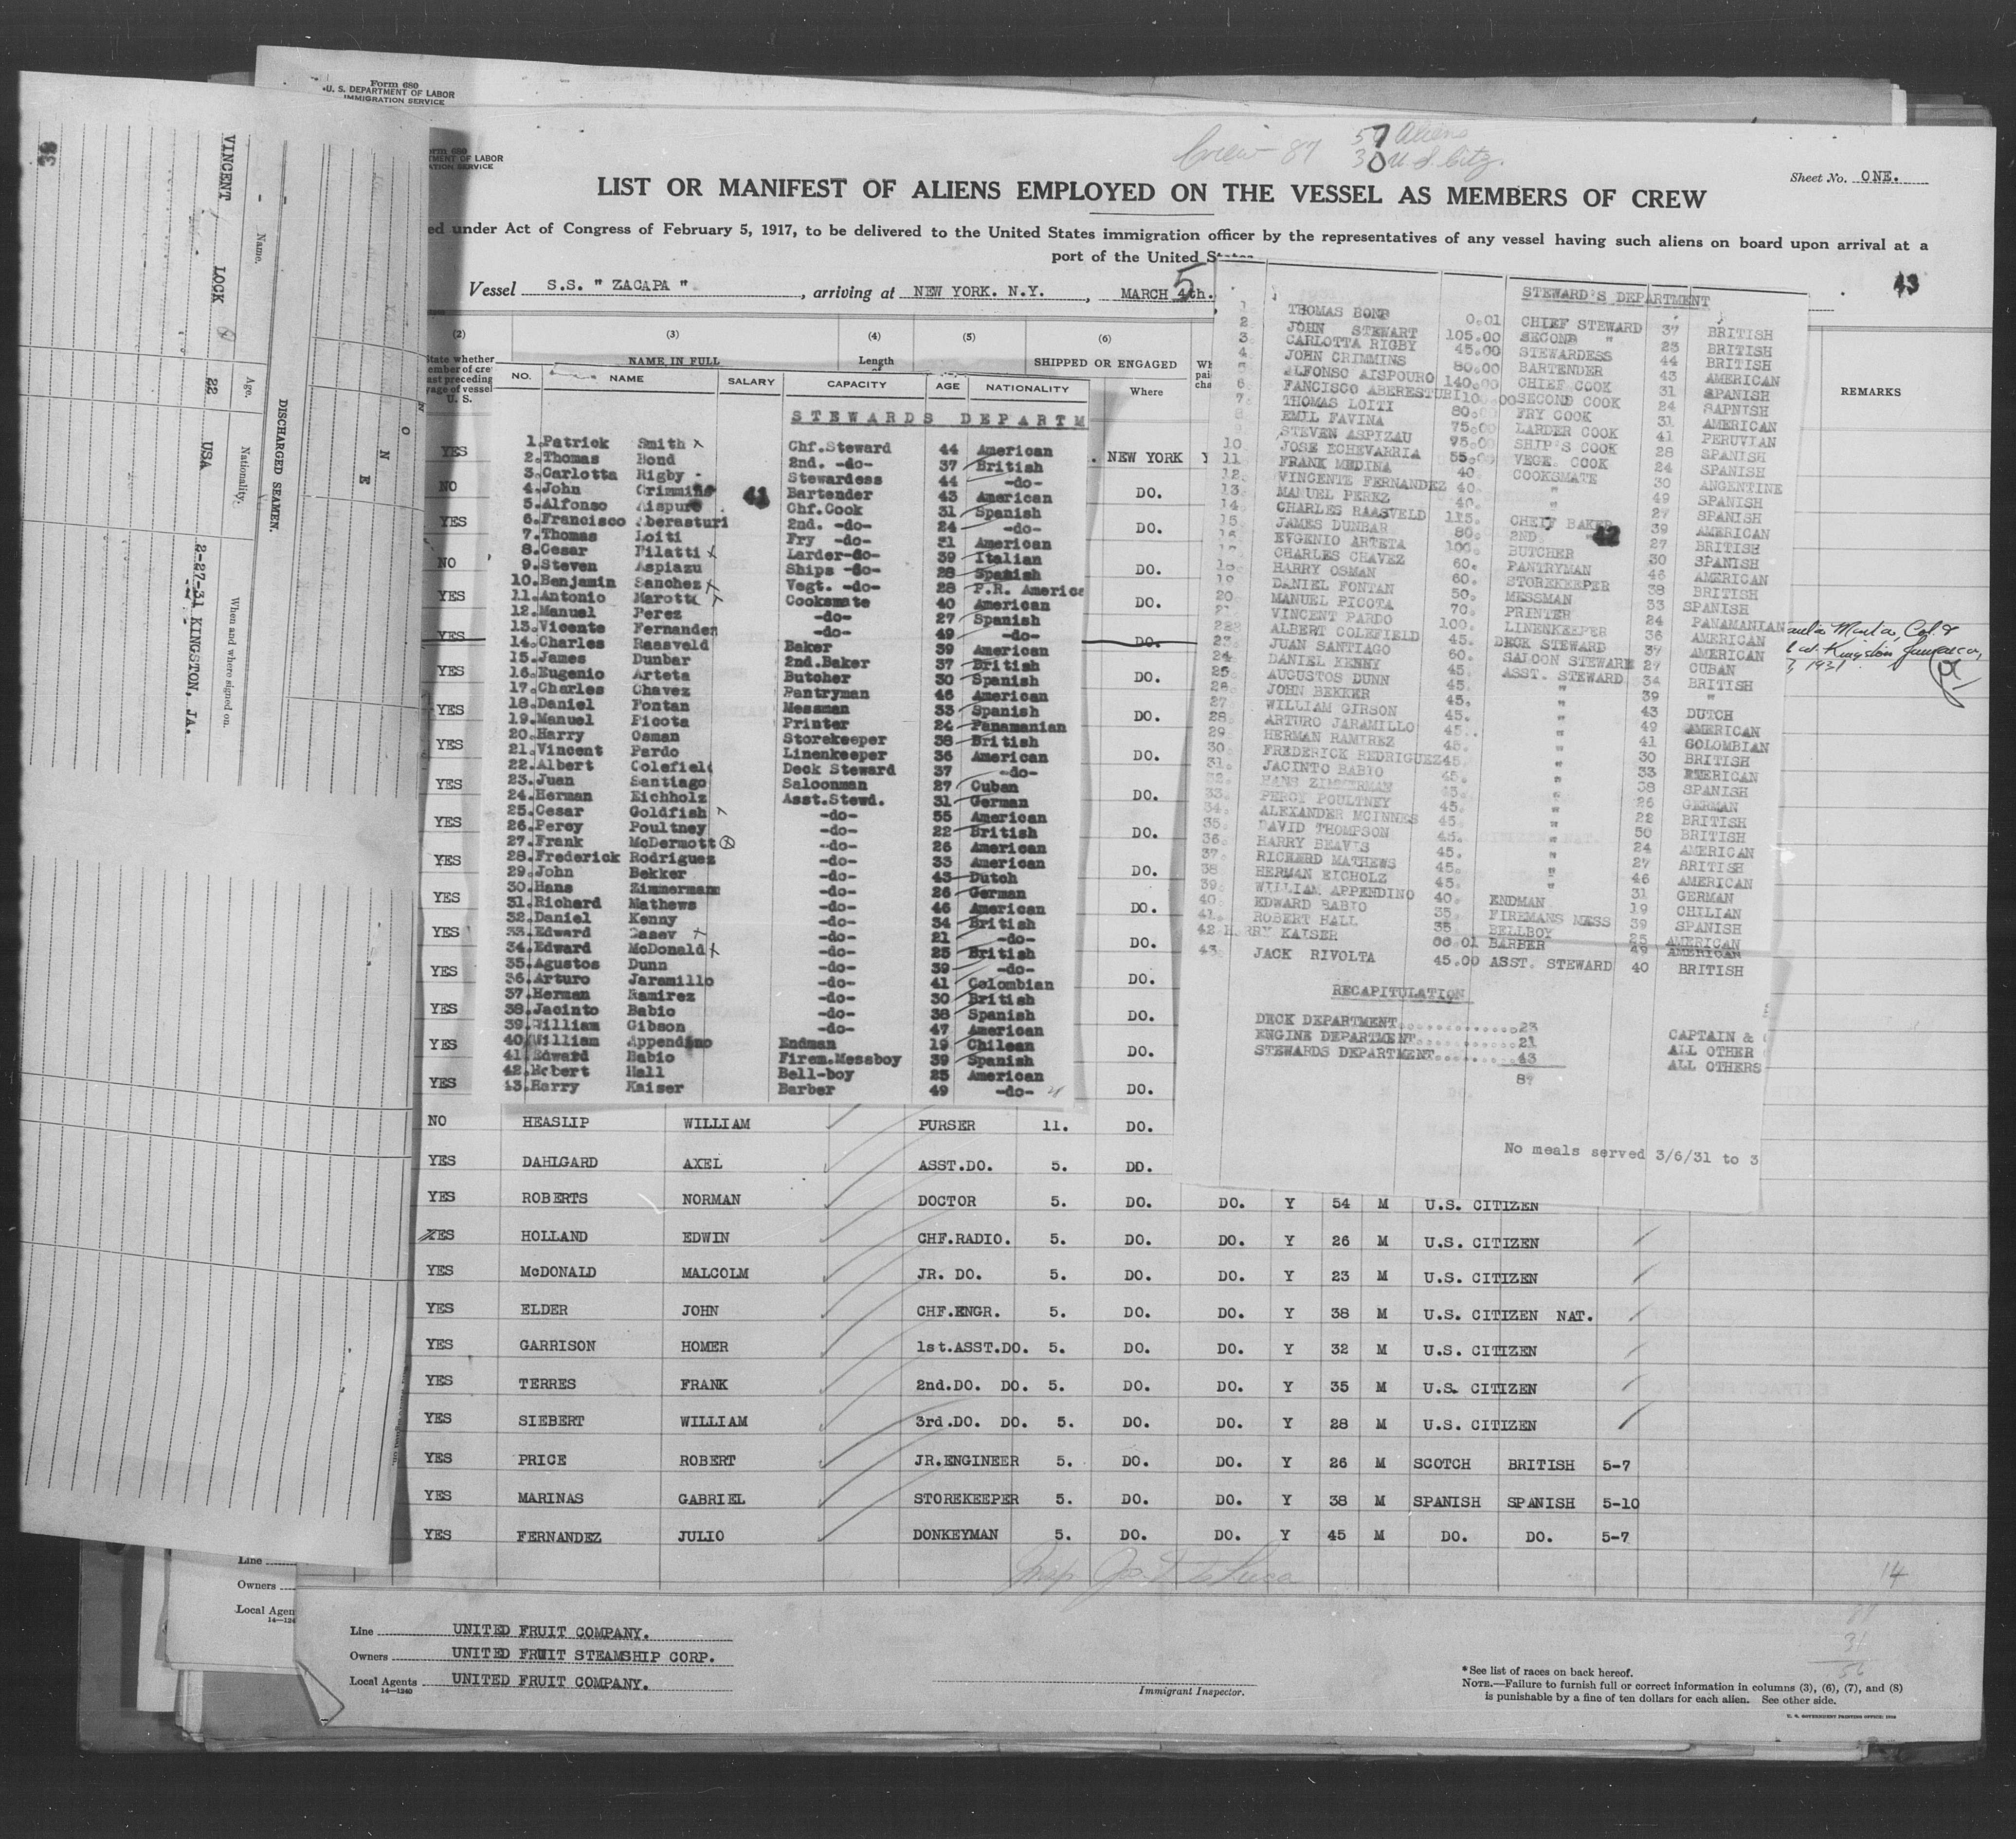 Form 680
U. S. DEPARTMENT OF LABOR
IMMIGRATION SERVICE
38
VINCENT LOCK 22 USA 2-27-31 KINGSTON, JA.
Name. Age. Nationality. When and where signed on.
DISCHARGED SEAMEN.
N O N E
Crew 87 57 Aliens
30 U.S. Citz.
Sheet No. ONE.
LIST OR MANIFEST OF ALIENS EMPLOYED ON THE VESSEL AS MEMBERS OF CREW
ed under Act of Congress of February 5, 1917, to be delivered to the United States immigration officer by the representatives of any vessel having such aliens on board upon arrival at a
port of the United States
Vessel S.S. " ZACAPA " , arriving at NEW YORK. N.Y. , MARCH 5th.
43
(2) (3) (4) (5) (6)
State whether
member of crew
last preceding
voyage of vessel
U. S.
NAME IN FULL Length SHIPPED OR ENGAGED
Where
REMARKS
NO. NAME SALARY CAPACITY AGE NATIONALITY
STEWARDS DEPARTM
1. Patrick Smith x Chf.Steward 44 American
2. Thomas Bond 2nd. -do- 37 British
3. Carlotta Rigby Stewardess 44 -do-
4. John Crimmins 41 Bartender 43 American
5. Alfonso Aispuro Chf.Cook 31 Spanish
6. Francisco Aberasturi 2nd. -do- 24 -do-
7. Thomas Loiti Fry -do- 31 American
8. Cesar Pilatti x Larder-do- 39 Italian
9. Steven Aspiazu Ships -do- 28 Spanish
10. Benjamin Sanchez x Vegt. -do- 28 P.R. America
11. Antonio Marotta Cooksmate 40 American
12. Manuel Perez -do- 27 Spanish
13. Vicente Fernandez -do- 49 -do-
14. Charles Raasveld Baker 39 American
15. James Dunbar 2nd.Baker 37 British
16. Eugenio Arteta Butcher 30 Spanish
17. Charles Chavez Pantryman 46 American
18. Daniel Fontan Messman 33 Spanish
19. Manuel Picota Printer 24 Panamanian
20. Harry Osman Storekeeper 38 British
21. Vincent Pardo Linenkeeper 36 American
22. Albert Colefield Deck Steward 37 -do-
23. Juan Santiago Saloonman 27 Cuban
24. Herman Eichholz Asst.Stewd. 31 German
25. Cesar Goldfish -do- 55 American
26. Percy Poultney -do- 22 British
27. Frank McDermott x -do- 26 American
28. Frederick Rodriguez -do- 33 American
29. John Bekker -do- 43 Dutch
30. Hans Zimmermann -do- 26 German
31. Richard Mathews -do- 46 American
32. Daniel Kenny -do- 34 British
33. Edward Casey x -do- 21 -do-
34. Edward McDonald x -do- 25 British
35. Agustos Dunn -do- 39 -do-
36. Arturo Jaramillo -do- 41 Colombian
37. Herman Ramirez -do- 30 British
38. Jacinto Babio -do- 38 Spanish
39. William Gibson -do- 47 American
40. William Appendino Endman 19 Chilean
41. Edward Babio Firem.Messboy 39 Spanish
42. Robert Hall Bell-boy 25 American
43. Harry Kaiser Barber 49 -do-
STEWARD'S DEPARTMENT
1 THOMAS BOND 0.01 CHIEF STEWARD 37 BRITISH
2. JOHN STEWART 105.00 SECOND " 23 BRITISH
3. CARLOTTA RIGBY 45.00 STEWARDESS 44 BRITISH
4. JOHN CRIMMINS 80.00 BARTENDER 43 AMERICAN
5 ALFONSO AISPOURO 140.00 CHIEF COOK 31 SPANISH
6. FANCISCO ABERESTURI 110.00 SECOND COOK 24 SAPNISH
7. THOMAS LOITI 80.00 FRY COOK 31 AMERICAN
8. EMIL FAVINA 75.00 LARDER COOK 41 PERUVIAN
9. STEVEN ASPIZAU 75.00 SHIP'S COOK 28 SPANISH
10 JOSE ECHEVARRIA 55.00 VEGE. COOK 24 SPANISH
11. FRANK MEDINA 40. COOKSMATE 30 ANGENTINE
12. VINCENTE FERNANDEZ 40. " 49 SPANISH
13. MANUEL PEREZ 40. " 27 SPANISH
14. CHARLES RAASVELD 115. CHEIF BAKER 39 AMERICAN
15. JAMES DUNBAR 80. 2ND. 42 27 BRITISH
16. EVGENIO ARTETA 100. BUTCHER 30 SPANISH
17. CHARLES CHAVEZ 60. PANTRYMAN 46 AMERICAN
18. HARRY OSMAN 60. STOREKEEPER 38 BRITISH
19 DANIEL FONTAN 50. MESSMAN 33 SPANISH
20. MANUEL PICOTA 70. PRINTER 24 PANAMANIAN
21. VINCENT PARDO 100. LINENKEEPER 36 AMERICAN
22. ALBERT COLEFIELD 45. DECK STEWARD 37 AMERICAN
23. JUAN SANTIAGO 60. SALOON STEWARD 27 CUBAN
24. DANIEL KENNY 45. ASST. STEWARD 34 BRITISH
25. AUGUSTOS DUNN 45. " 39 "
26. JOHN BEKKER 45. " 43 DUTCH
27. WILLIAM GIBSON 45. " 49 AMERICAN
28. ARTURO JARAMILLO 45. " 41 COLOMBIAN
29. HERMAN RAMIREZ 45. " 30 BRITISH
30. FREDERICK REDRIGUEZ 45. " 33 AMERICAN
31. JACINTO BABIO 45. " 38 SPANISH
32. HANS ZIMMERMAN 45. " 26 GERMAN
33. PERCY POULTNEY 45. " 22 BRITISH
34. ALEXANDER MCINNES 45. " 50 BRITISH
35. DAVID THOMPSON 45. " 24 AMERICAN
36. HARRY BEAVIS 45. " 27 BRITISH
37. RICHERD MATHEWS 45. " 46 AMERICAN
38 HERMAN EICHOLZ 45. " 31 GERMAN
39. WILLIAM APPENDINO 40. ENDMAN 19 CHILIAN
40. EDWARD BABIO 35. FIREMANS MESS 39 SPANISH
41. ROBERT HALL 35 BELLBOY 25 AMERICAN
42 HARRY KAISER 00 01 BARBER 49 AMERICAN
43. JACK RIVOLTA 45.00 ASST. STEWARD 40 BRITISH
RECAPITULATION
DECK DEPARTMENT 23 CAPTAIN &
ENGINE DEPARTMENT 21 ALL OTHER
STEWARDS DEPARTMENT 43 ALL OTHERS
87
No meals served 3/6/31 to 3
Santa Marta, Col. &
at Kingston Jamaica,
1931
YES NEW YORK Y
NO DO.
YES DO.
NO DO.
YES DO.
YES DO.
YES DO.
YES DO.
YES DO.
YES DO.
YES DO.
YES DO.
YES DO.
YES DO.
YES DO.
YES DO.
YES DO.
YES DO.
NO HEASLIP WILLIAM PURSER 11. DO.
YES DAHLGARD AXEL ASST.DO. 5. DD.
YES ROBERTS NORMAN DOCTOR 5. DO. DO. Y 54 M U.S. CITIZEN
YES HOLLAND EDWIN CHF.RADIO. 5. DO. DO. Y 26 M U.S. CITIZEN
YES McDONALD MALCOLM JR. DO. 5. DO. DO. Y 23 M U.S. CITIZEN
YES ELDER JOHN CHF.ENGR. 5. DO. DO. Y 38 M U.S. CITIZEN NAT.
YES GARRISON HOMER 1st.ASST.DO. 5. DO. DO. Y 32 M U.S. CITIZEN
YES TERRES FRANK 2nd.DO. DO. 5. DO. DO. Y 35 M U.S. CITIZEN
YES SIEBERT WILLIAM 3rd.DO. DO. 5. DO. DO. Y 28 M U.S. CITIZEN
YES PRICE ROBERT JR.ENGINEER 5. DO. DO. Y 26 M SCOTCH BRITISH 5-7
YES MARINAS GABRIEL STOREKEEPER 5. DO. DO. Y 38 M SPANISH SPANISH 5-10
YES FERNANDEZ JULIO DONKEYMAN 5. DO. DO. Y 45 M DO. DO. 5-7
14
Line
Owners
Local Agen
Line UNITED FRUIT COMPANY.
Owners UNITED FRUIT STEAMSHIP CORP.
Local Agents UNITED FRUIT COMPANY.
14—1240
Immigrant Inspector.
*See list of races on back hereof.
NOTE.—Failure to furnish full or correct information in columns (3), (6), (7), and (8)
is punishable by a fine of ten dollars for each alien. See other side.
U. S. GOVERNMENT PRINTING OFFICE